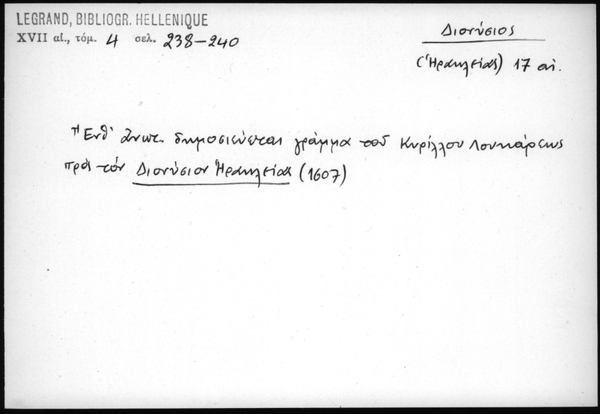 LEGRAND, BIBLIOGR. HELLENIQUE
XVII αἰ., τόμ. 4 σελ. 238-240
Διονύσιος
(Ἡρακλείας) 17 αἰ.
Ἔνθ' ἀνωτ. δημοσιεύεται γράμμα τοῦ Κυρίλλου Λουκάρεως
πρὸς τὸν Διονύσιον Ἡρακλείας (1607)